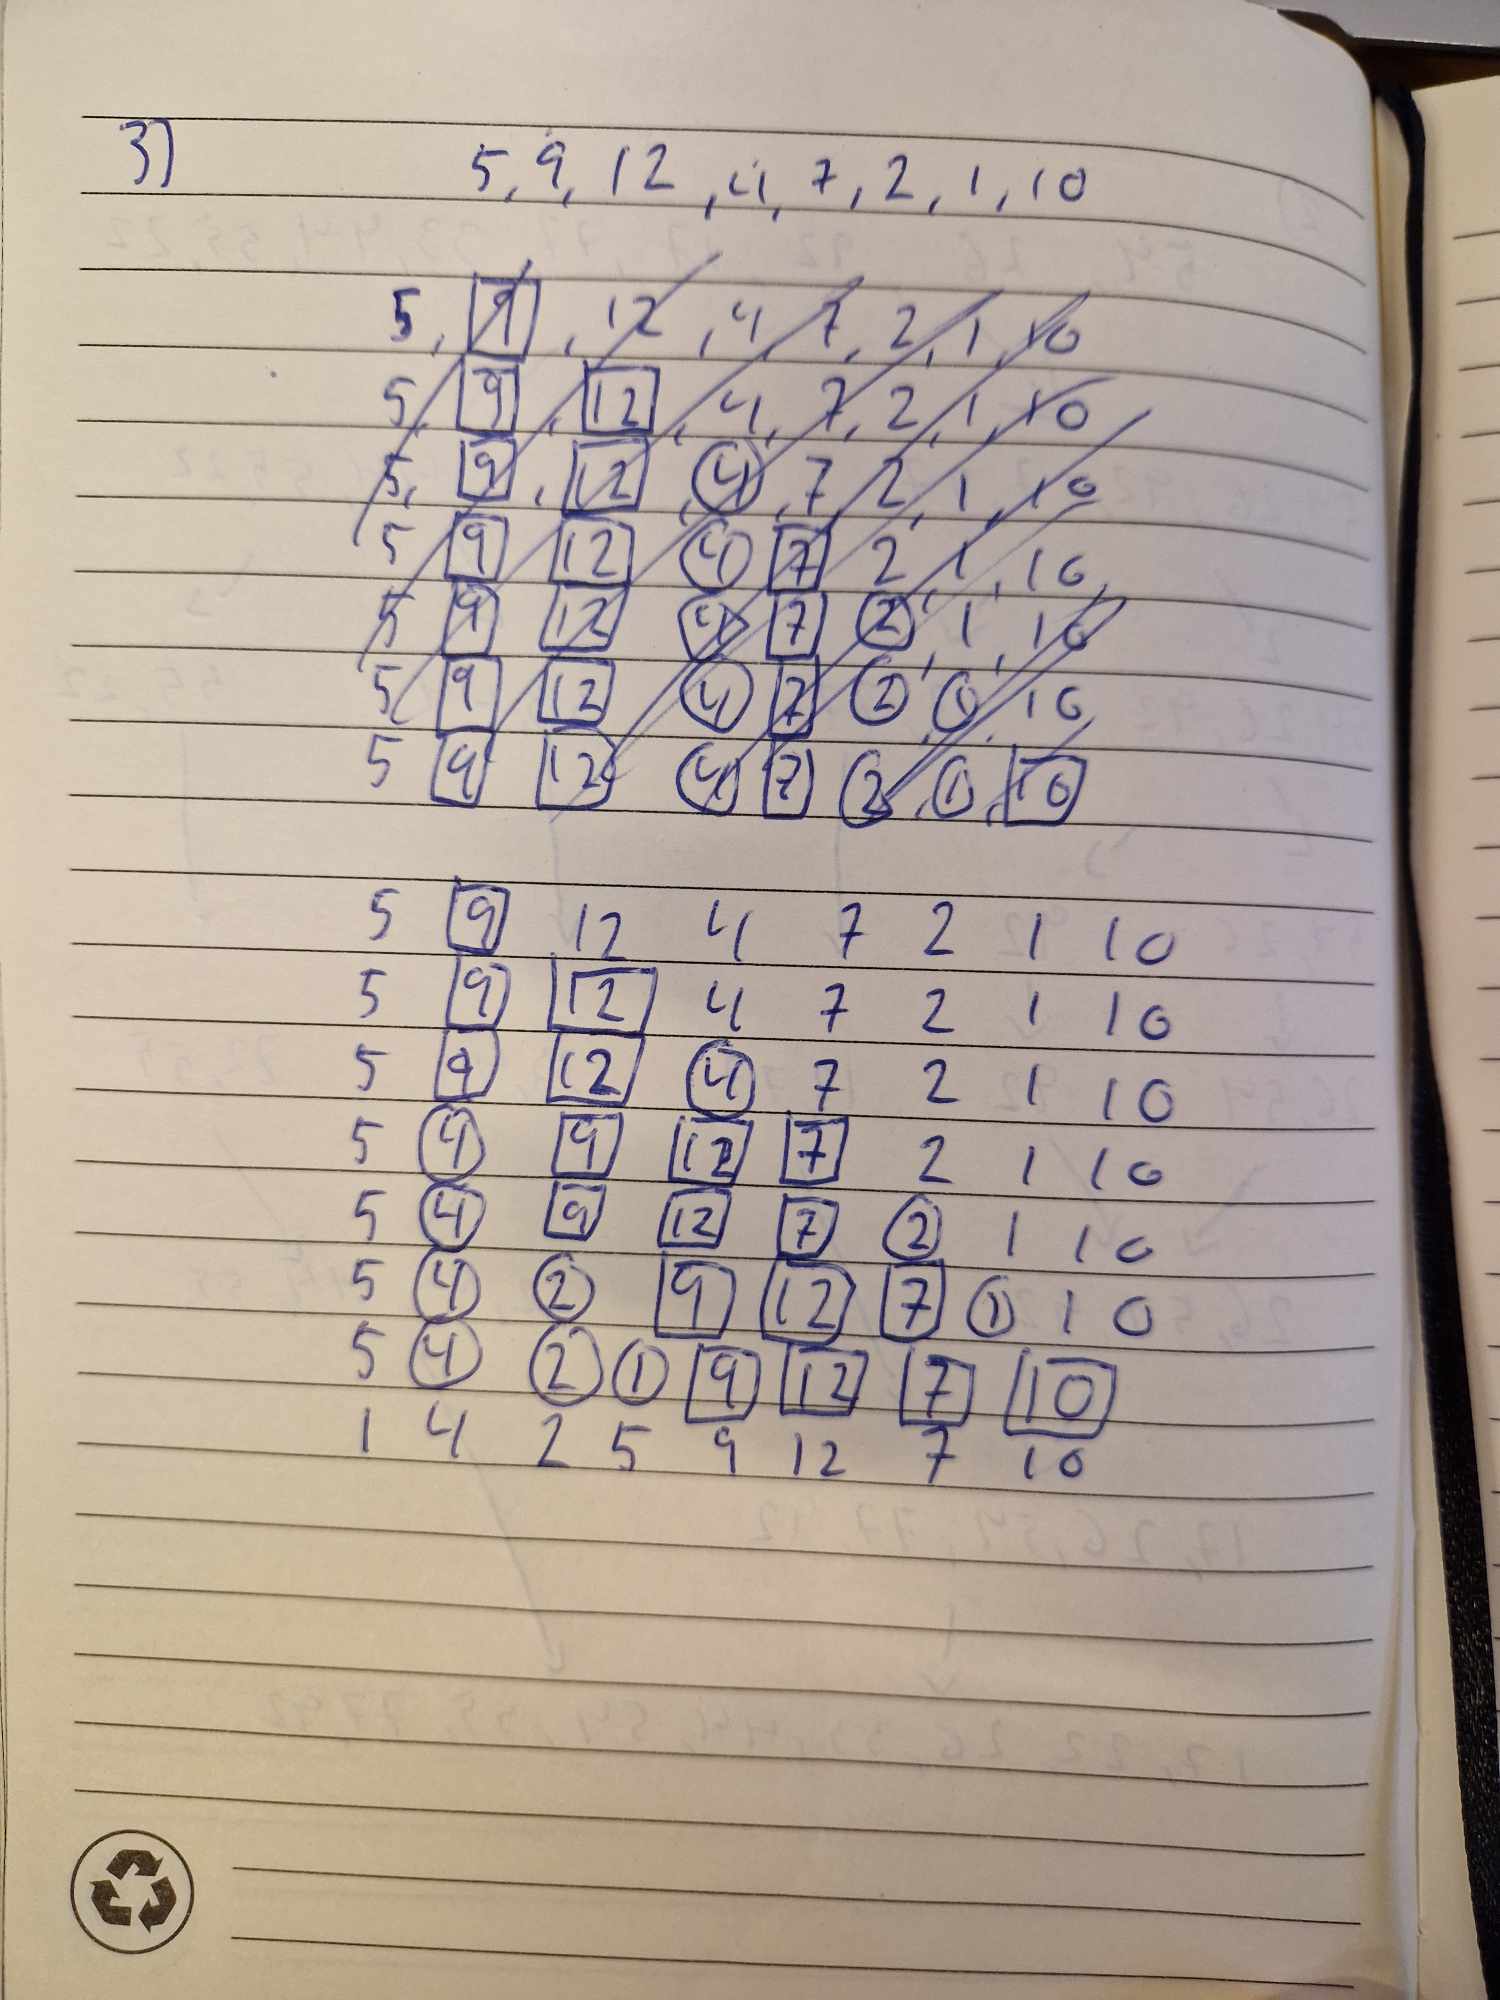 3)
5, 9, 12, 4, 7, 2, 1, 10
5, 9, 12, 4, 7, 2, 1, 10
5, 9, 12, 4, 7, 2, 1, 10
5, 9, 12, 4, 7, 2, 1, 10
5 9 12 4 7 2, 1, 10,
5 9 12 4 7 2, 1, 10
5 9 12 4 7 2, 1, 10
5 9 12 4 7 2, 1, 10
5 9 12 4 7 2 1 10
5 9 12 4 7 2 1 10
5 9 12 4 7 2 1 10
5 4 9 12 7 2 1 10
5 4 9 12 7 2 1 10
5 4 2 9 12 7 1 10
5 4 2 1 9 12 7 10
1 4 2 5 9 12 7 10